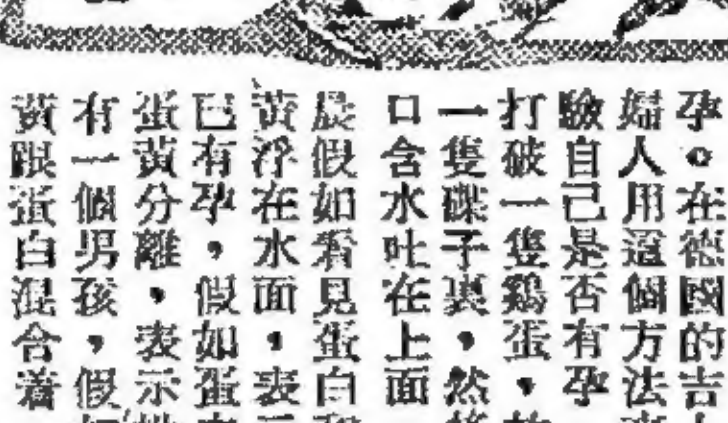 孕。在德國的吉
婦人用這個方法
驗自己是否有孕
打破一隻鷄蛋，
一隻碟子裏，然
口含水吐在上面
晨假如看見蛋白
黃浮在水面，表
已有孕，假如蛋
蛋黃分離，表示
有一個男孩，假
黃跟蛋白混含着